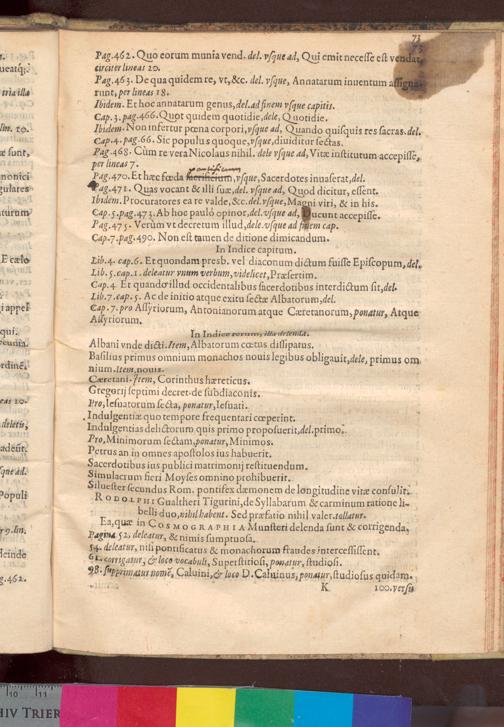 73
Pag.462. Quo eorum munia vend. del. vſque ad, Qui emit neceſſe eſt vendat,
circiter lineas 20.
Pag.463. De qua quidem re, vt, &c. del. vſque, Annatarum inuentum aſſigna-
runt, per lineas 18.
Ibidem. Et hoc annatarum genus, del. ad finem vſque capitis.
Cap.3. pag.466. Quot quidem quotidie, dele, Quotidie.
Ibidem. Non infertur pœna corpori, vſque ad, Quando quiſquis res ſacras. del.
Cap.4. pag.66. Sic populus quoque, vſque, diuiditur ſectas.
Pag.468. Cùm re vera Nicolaus nihil. dele vſque ad, Vitæ inſtitutum accepiſſe,
per lineas 7.
Pag.470. Et hæc fœda ſacrificium, vſque, Sacerdotes inuaſerat, del.
Pag.471. Quas vocant & illi ſuæ, del. vſque ad, Quod dicitur, eſſent.
Ibidem. Procuratores ea re valde, &c. del. vſque, Magni viri, & in his.
Cap.5. pag.473. Ab hoc paulò opinor, del. vſque ad, Ducunt accepiſſe.
Pag.475. Verùm vt decretum illud, dele. vſque ad finem cap.
Cap.7. pag.490. Non eſt tamen de ditione dimicandum.
In Indice capitum.
Lib.4. cap.6. Et quondam presb. vel diaconum dictum fuiſſe Epiſcopum, del.
Lib.5. cap.1. deleatur vnum verbum, videlicet, Præſertim.
Cap.4 Et quando illud occidentalibus ſacerdotibus interdictum ſit, del.
Lib.7. cap.5. Ac de initio atque exitu ſectæ Albatorum, del.
Cap.7. pro Aſſyriorum, Antonianorum atque Cæretanorum, ponatur, Atque
Aſſyriorum.
In Indice rerum, illa delenda.
Albani vnde dicti. Item, Albatorum cœtus diſſipatus.
Baſilius primus omnium monachos nouis legibus obligauit, dele, primus om
nium. Item, nouis.
Cæretani. Item, Corinthus hæreticus.
Gregorij ſeptimi decret. de ſubdiaconis.
Pro, Ieſuatorum ſecta, ponatur, Ieſuati.
Indulgentiæ quo tempore frequentari cœperint.
Indulgentias delictorum quis primo propoſuerit, del. primo.
Pro, Minorum ſectam, ponatur, Minimos.
Petrus an in omnes apoſtolos ius habuerit.
Sacerdotibus ius publici matrimonij reſtituendum.
Simulacrum fieri Moyſes omnino prohibuerit.
Silueſter ſecundus Rom. pontifex dæmonem de longitudine vitæ conſulit.
RODOLPHI Gualtheri Tigurini, de Syllabarum & carminum ratione li-
belli duo, nihil habent. Sed præfatio nihil valer. tollatur.
Ea, quæ in COSMOGRAPHIA Munſteri delenda ſunt & corrigenda,
Pagina 52, deleatur, & nimis ſumptuoſa.
54. deleatur, niſi pontificatus & monachorum fraudes interceſſiſſent.
61. corrigatur, & loco vocabuli, Superſtitioſi, ponatur, ſtudioſi.
98. ſupprimatur nomē, Caluini, & loco D. Caluinus, ponatur, ſtudioſus quidam.
K
100. verſu